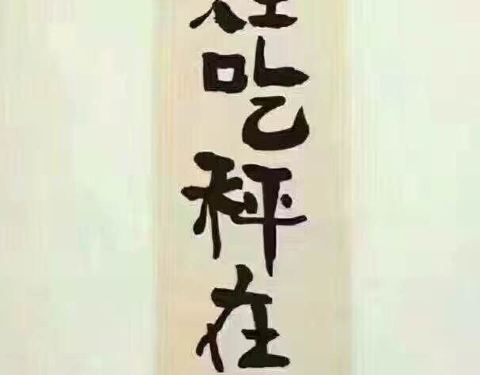 吃秤在